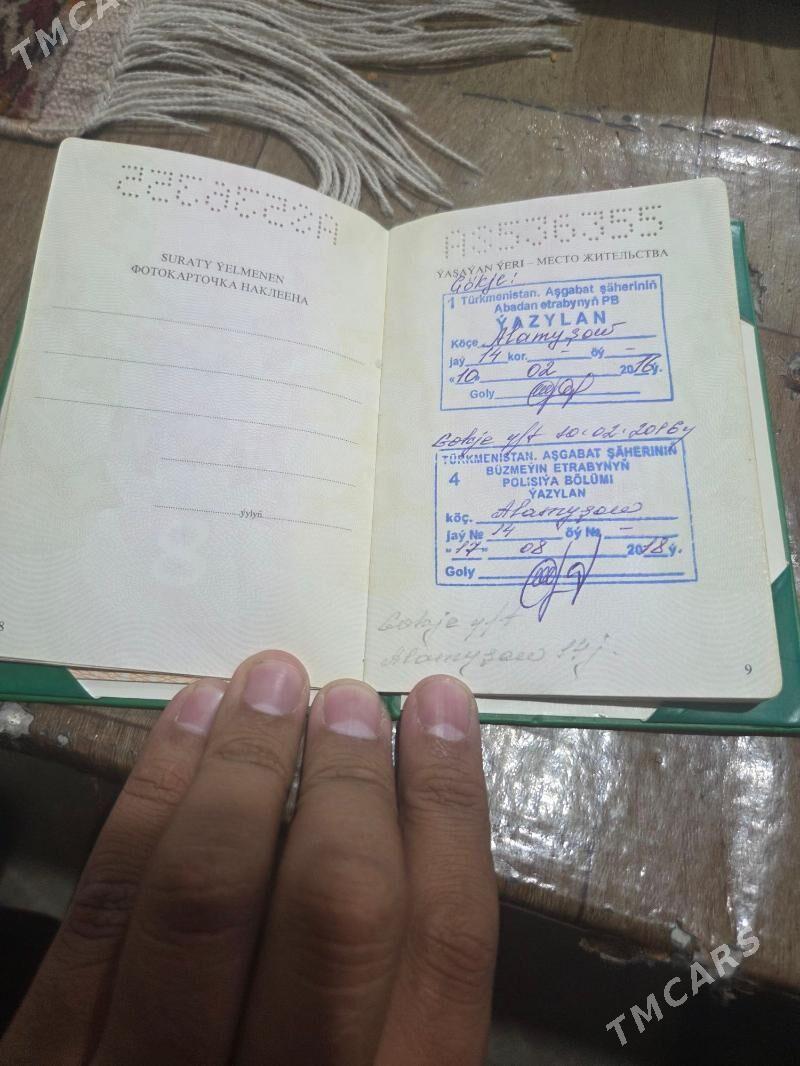 TMCARS
SURATY ÝELMENEN
ФОТОКАРТОЧКА НАКЛЕЕНА
ýylyň
8
ÝAŞAÝAN ÝERI – МЕСТО ЖИТЕЛЬСТВА
Gökje!
1 Türkmenistan. Aşgabat şäheriniň
Abadan etrabynyň PB
ÝAZYLAN
Köçe Alamyşow
jaý 14 kor. - öý -
«10» 02 2016ý.
Goly
Gokje y/t 10.02.2016y
TÜRKMENISTAN. AŞGABAT ŞÄHERINIŇ
4 BÜZMEÝIN ETRABYNYŇ
POLISIÝA BÖLÜMI
ÝAZYLAN
köç. Alamyşow
jaý № 14 öý № -
"17" 08 2018ý.
Goly
Gokje y/t
Alamyşow 14 j.
9
TMCARS